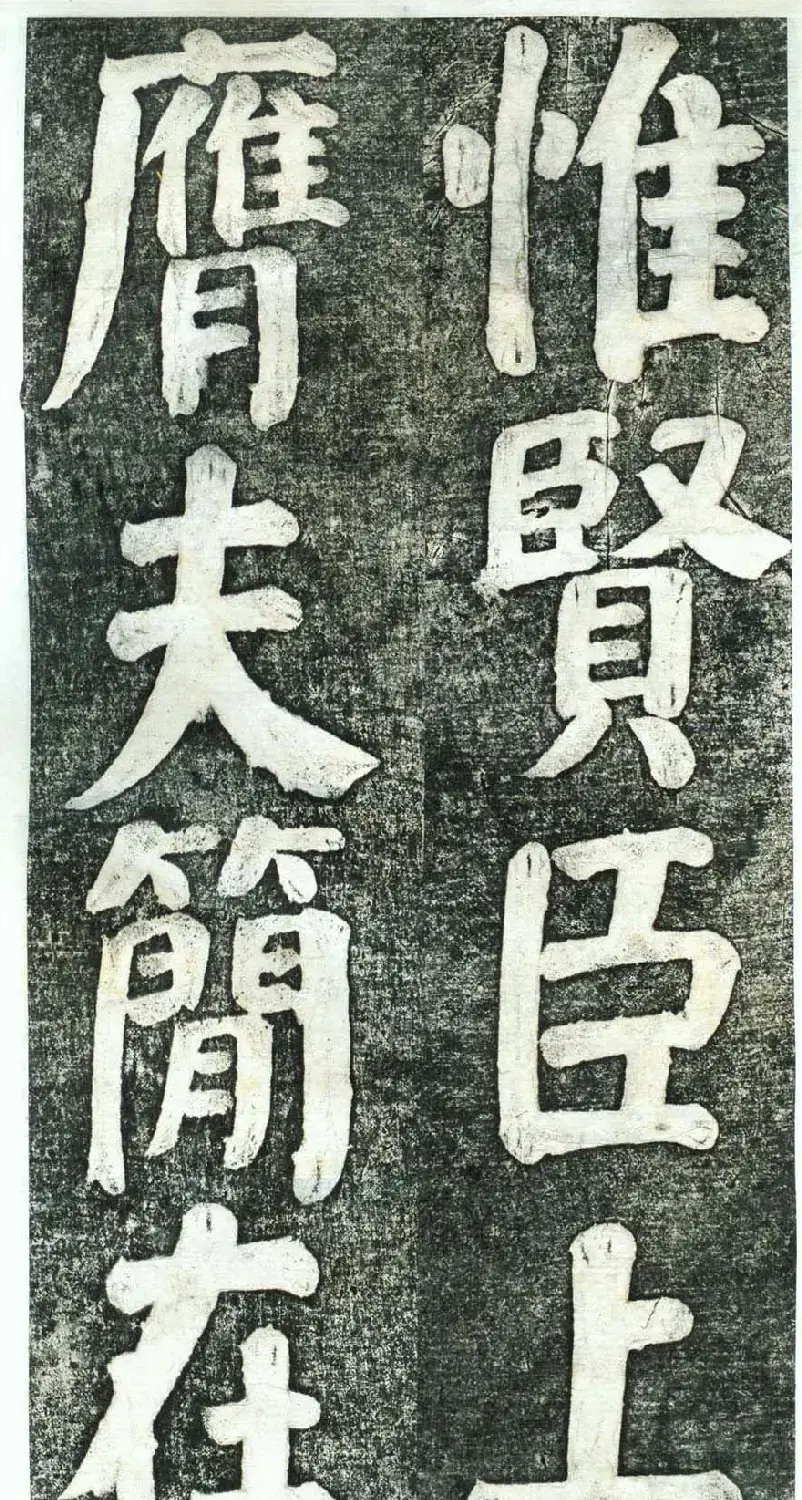 惟賢臣上
膺夫簡在